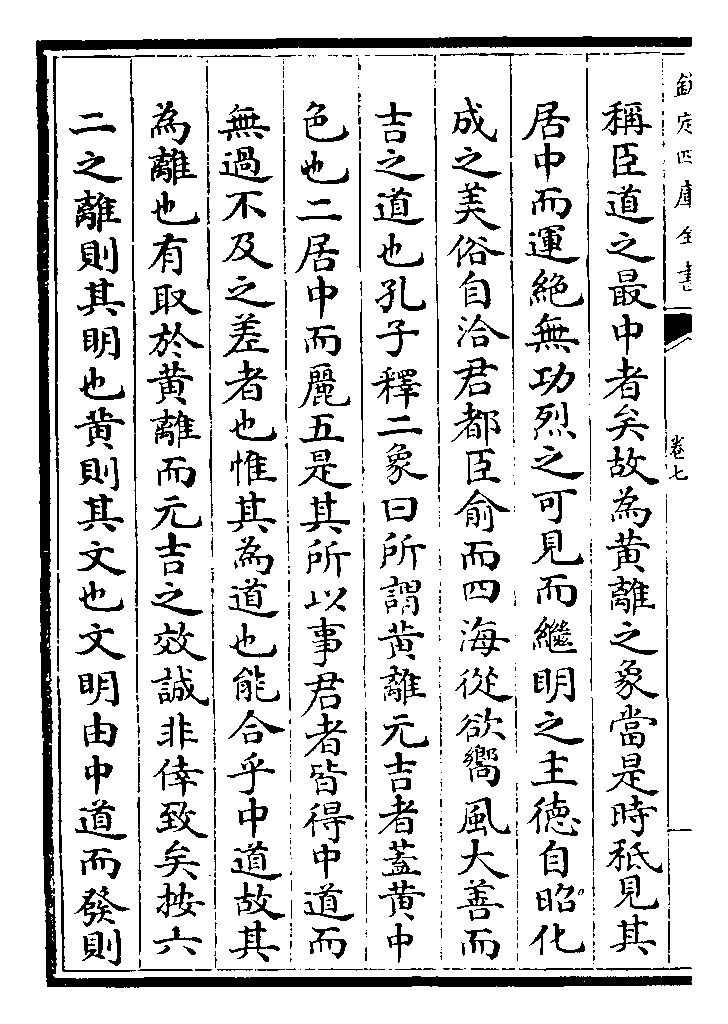 欽定四庫全書
卷七
稱臣道之最中者矣故為黄離之象當是時秪見其
居中而運絶無功烈之可見而繼明之主德自昭化
成之美俗自洽君都臣俞而四海從欲嚮風大善而
吉之道也孔子釋二象曰所謂黄離元吉者蓋黄中
色也二居中而麗五是其所以事君者皆得中道而
無過不及之差者也惟其為道也能合乎中道故其
為離也有取於黄離而元吉之效誠非倖致矣按六
二之離則其明也黄則其文也文明由中道而發則